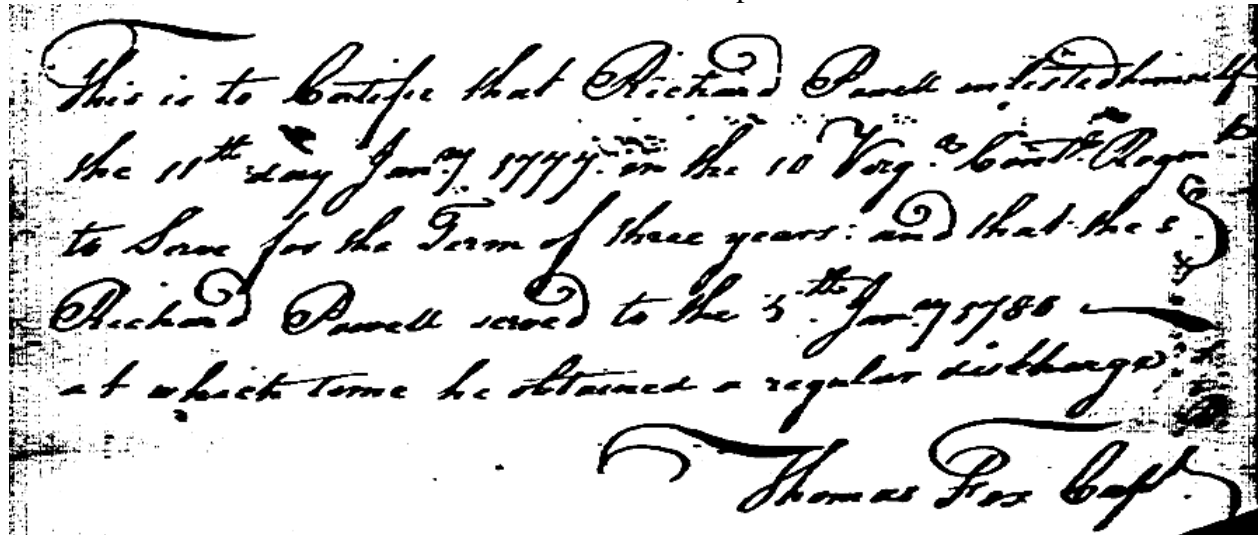 This is to Certifie that Richard Powell enlisted himself
the 11th day Jany 1777. in the 10 Virga Contl Regmt
to Serve for the Term of three years: and that the sd
Richard Powell served to the 5th Jany 1780
at which time he obtained a regular discharge
Thomas Fox Capt.